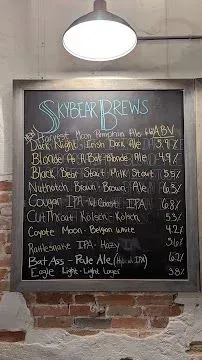 SKYBEAR BREWS
NEW Harvest Moon Pumpkin Ale ABV
Dark Night - Irish Dark Ale 3.9%
Blonde As A Bat - Blonde Ale 4.9%
Black Bear Stout Milk Stout 5.5%
Nuthatch Brown - Brown Ale 6.3%
Cougar IPA - West Coast IPA 6.8%
CutThroat Kölsch - Kölsch 5.3%
Coyote Moon - Belgian White 4.2%
Rattlesnake IPA - Hazy 5.6%
Bat Ass - Pale Ale 6.2%
Eagle Light - Light Lager 3.8%